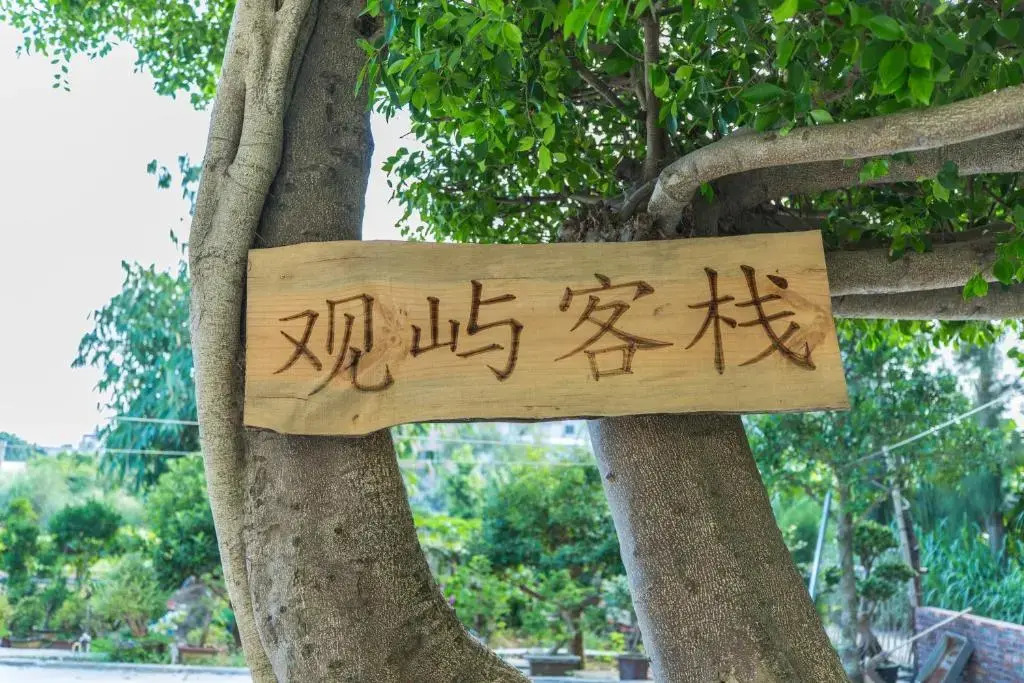 观屿客栈